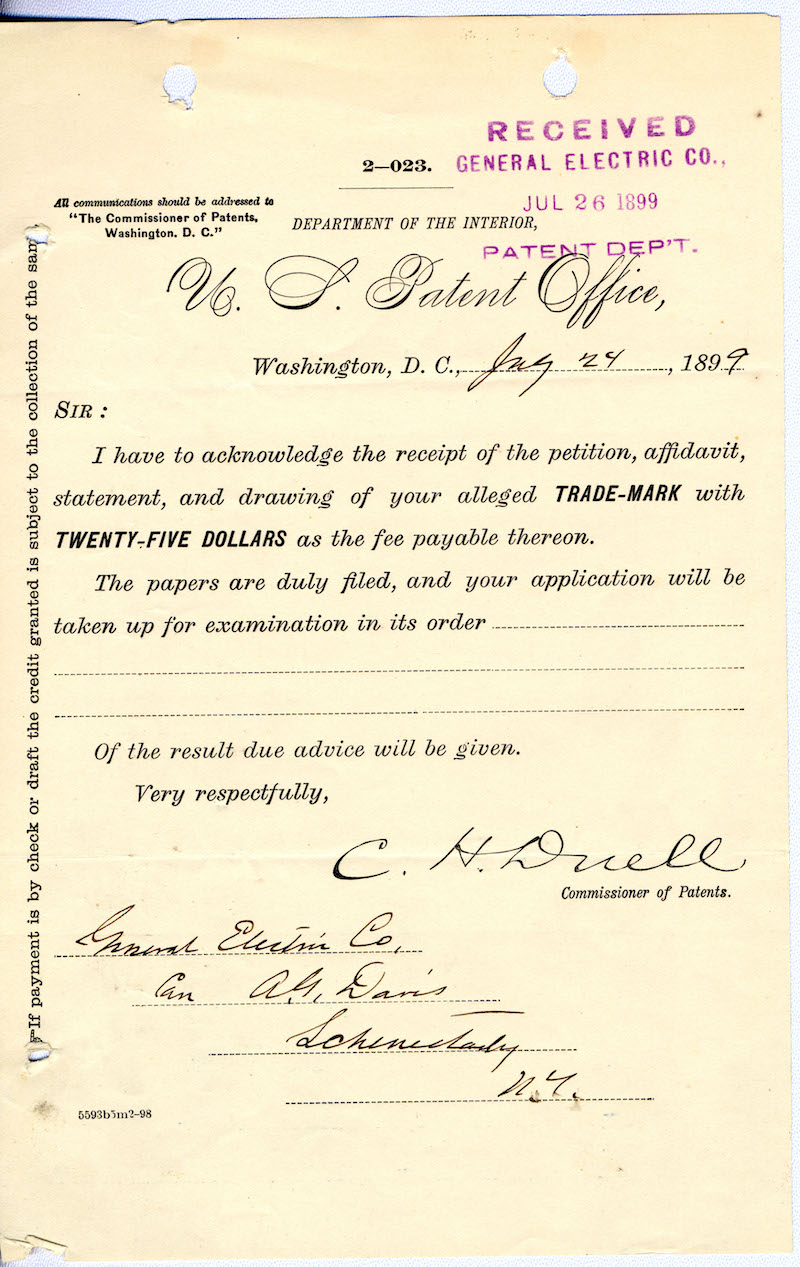 RECEIVED
GENERAL ELECTRIC CO.,
JUL 26 1899
PATENT DEP'T.
2—023.
All communications should be addressed to
"The Commissioner of Patents,
Washington. D. C."
DEPARTMENT OF THE INTERIOR,
U. S. Patent Office,
Washington, D. C., July 24, 1899
SIR :
I have to acknowledge the receipt of the petition, affidavit,
statement, and drawing of your alleged TRADE-MARK with
TWENTY-FIVE DOLLARS as the fee payable thereon.
The papers are duly filed, and your application will be
taken up for examination in its order
Of the result due advice will be given.
Very respectfully,
C. H. Duell
Commissioner of Patents.
General Electric Co,
Care A. G. Davis
Schenectady
N.Y.
5593b5m2-98
If payment is by check or draft the credit granted is subject to the collection of the sam